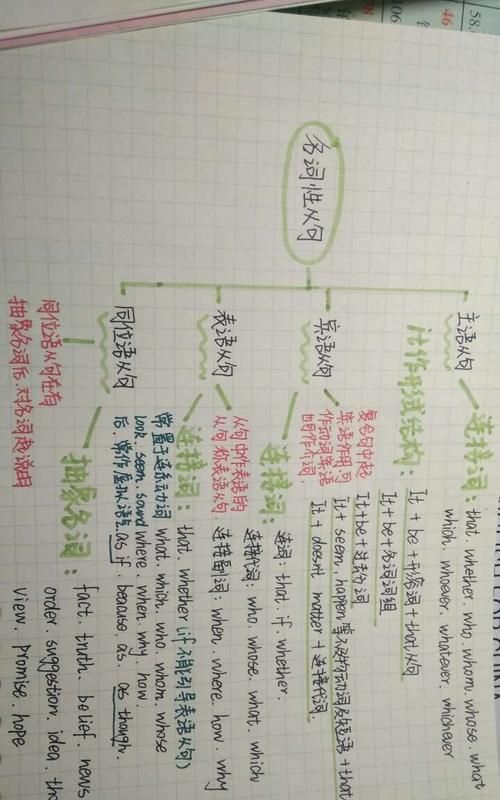 名词性从句
主语从句
连接词：that. whether. who. whom. whose. what
which. whoever. whatever. whichever
It作形式结构：
It + be + 形容词 + that从句
It + be + 名词词组
It + be + 过去分词
It + seem, happen等不及物动词及短语 + that
It + doesn't matter + 连接代词.
宾语从句
复合句中起
宾语作用,可
作动词宾语
也可作介词.
连接词：
连词：that. if. whether.
连接代词：who. whose. what. which
连接副词：when. where. how. why
表语从句
从句中作表语的
从句称表语从句.
连接词：
that. whether (if 不能引导表语从句)
what. which. who. whom. whose
where. when. why. how
as if. because. as. as though.
常置于连系动词
look. seem. sound
后,常作虚拟语气.
同位语从句
同位语从句在有
抽象名词后.对名词起说明
抽象名词：
fact. truth. belief. news
order. suggestion. idea.
view. promise. hope
58.
46
106